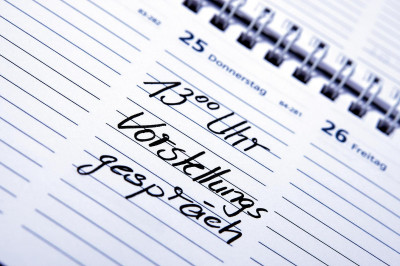 84-282
25 Donnerstag
84-281
13⁰⁰ Uhr
Vorstellungs
gespräch
26 Freitag